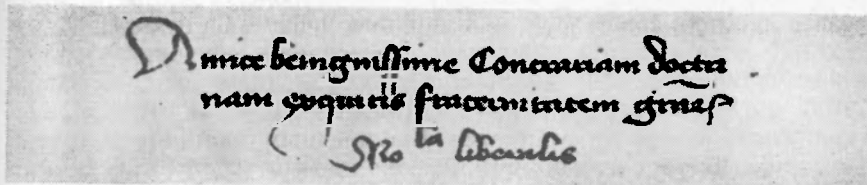 Amice benignissime Contrariam doctri
nam exquiris fraternitatem
liberalis